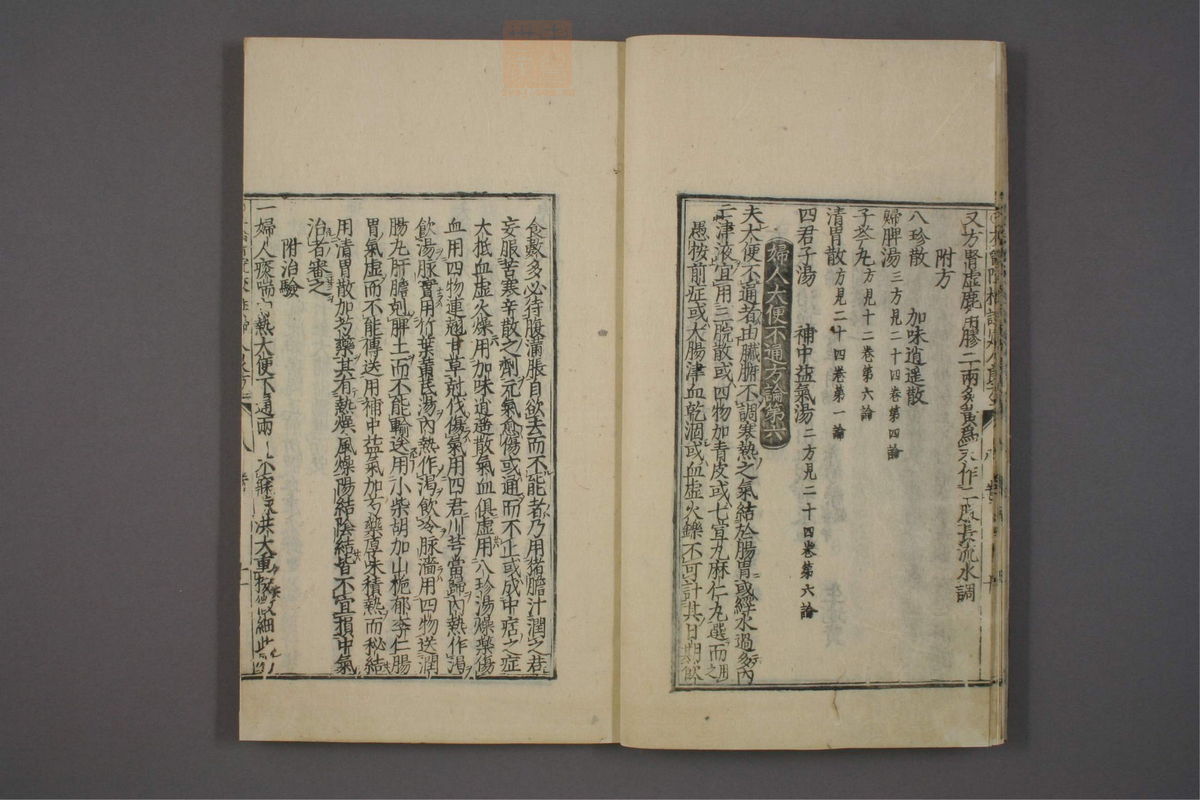 又方腎虛鹿角膠二兩多為末作一服長流水調
附方
八珍散 加味逍遥散
歸脾湯三方見二十四卷第四論
子芩丸方見十二卷第六論
清胃散方見二十四卷第一論
四君子湯 補中益氣湯二方見二十四卷第六論
婦人大便不通方論第六
夫大便不通者由臟腑不調寒熱之氣結於腸胃或經水過多内
亡津液宜用三脫散或四物加青皮或七宣丸麻仁丸選而用之
愚按前症或大腸津血乾涸或血虛火鑠不可計其日期飲
食數多必待腹滿脹自欲去而不能者乃用猪膽汁潤之若
妄服苦寒辛散之劑元氣愈傷或通而不止或成中痞之症
大抵血虛火燥用加味逍遥散氣血俱虛用八珍湯燥藥傷
血用四物連翹甘草尅伐傷氣用四君川芎當歸内熱作渴
飲湯脉實用竹葉黃芪湯内熱作渴飲冷脉濇用四物送潤
腸丸肝膽剋脾土而不能輸送用小柴胡加山梔郁李仁腸
胃氣虛而不能傳送用補中益氣加芍藥厚味積熱而秘結
用清胃散加芍藥其有熱燥風燥陽結陰結皆不宜損中氣
治者審之
附治驗
一婦人痰喘内熱大便不通兩 不寐脉洪大重按微細此